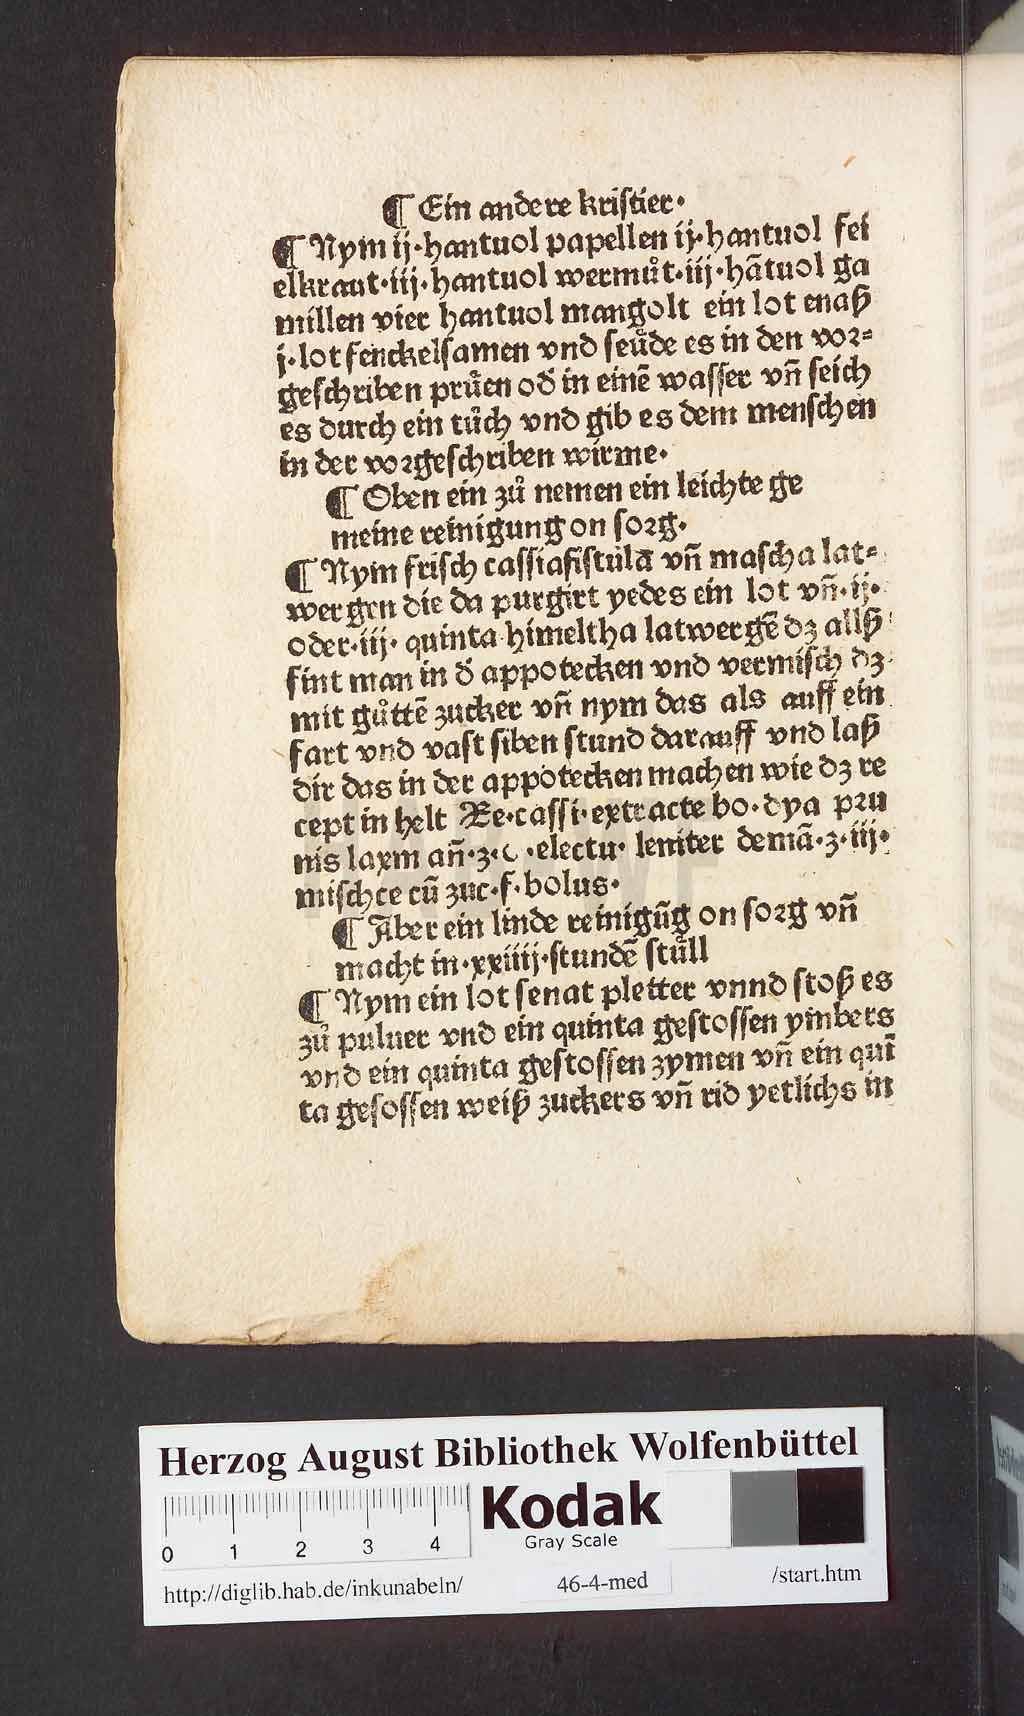 ¶ Ein andere kristier·
¶ Nym ij·hantuol papellen ij·hantuol fei
elkraut·iij·hantuol wermuͦt·iij·hātuol ga
millen vier hantuol mangolt ein lot enaß
j·lot fenckelsamen vnd seuͤde es in den vor⸗
geschriben pruͤen od̄ in einē wasser vn̄ seich
es durch ein tuͦch vnd gib es dem menschen
in der vorgeschriben wirme·
¶ Oben ein zuͦ nemen ein leichte ge
meine reinigung on sorg·
¶ Nym frisch cassiafistula vn̄ mascha lat⸗
wergen die da purgirt yedes ein lot vn̄·ij·
oder·iij· quinta himeltha latwergē dz allß
fint man in d̄ appotecken vnd vermisch dz
mit guͦttē zucker vn̄ nym das als auff ein
fart vnd vast siben stund darauff vnd laß
dir das in der appotecken machen wie dz re
cept in helt Re·cassi·extracte bo·dya pru
nis laxm an̄·ʒ· ·electu· leniter demā·ʒ·iij·
mischce cū zuc·f·bolus·
¶ Aber ein linde reinigūg on sorg vn̄
macht in·xxiiij·stundē stuͤll
¶ Nym ein lot senat pletter vnnd stoß es
zuͦ puluer vnd ein quinta gestossen ymbers
vnd ein quinta gestossen zymen vn̄ ein quī
ta gesossen weiß zuckers vn̄ rid yetlichs in
Herzog August Bibliothek Wolfenbüttel
0 1 2 3 4
Kodak
Gray Scale
http://diglib.hab.de/inkunabeln/ 46-4-med /start.htm